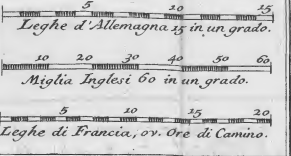 5 10 15
Leghe d'Allemagna 15 in un grado.
10 20 30 40 50 60
Miglia Inglesi 60 in un grado.
5 10 15 20
Leghe di Francia, ov. Ore di Camino.